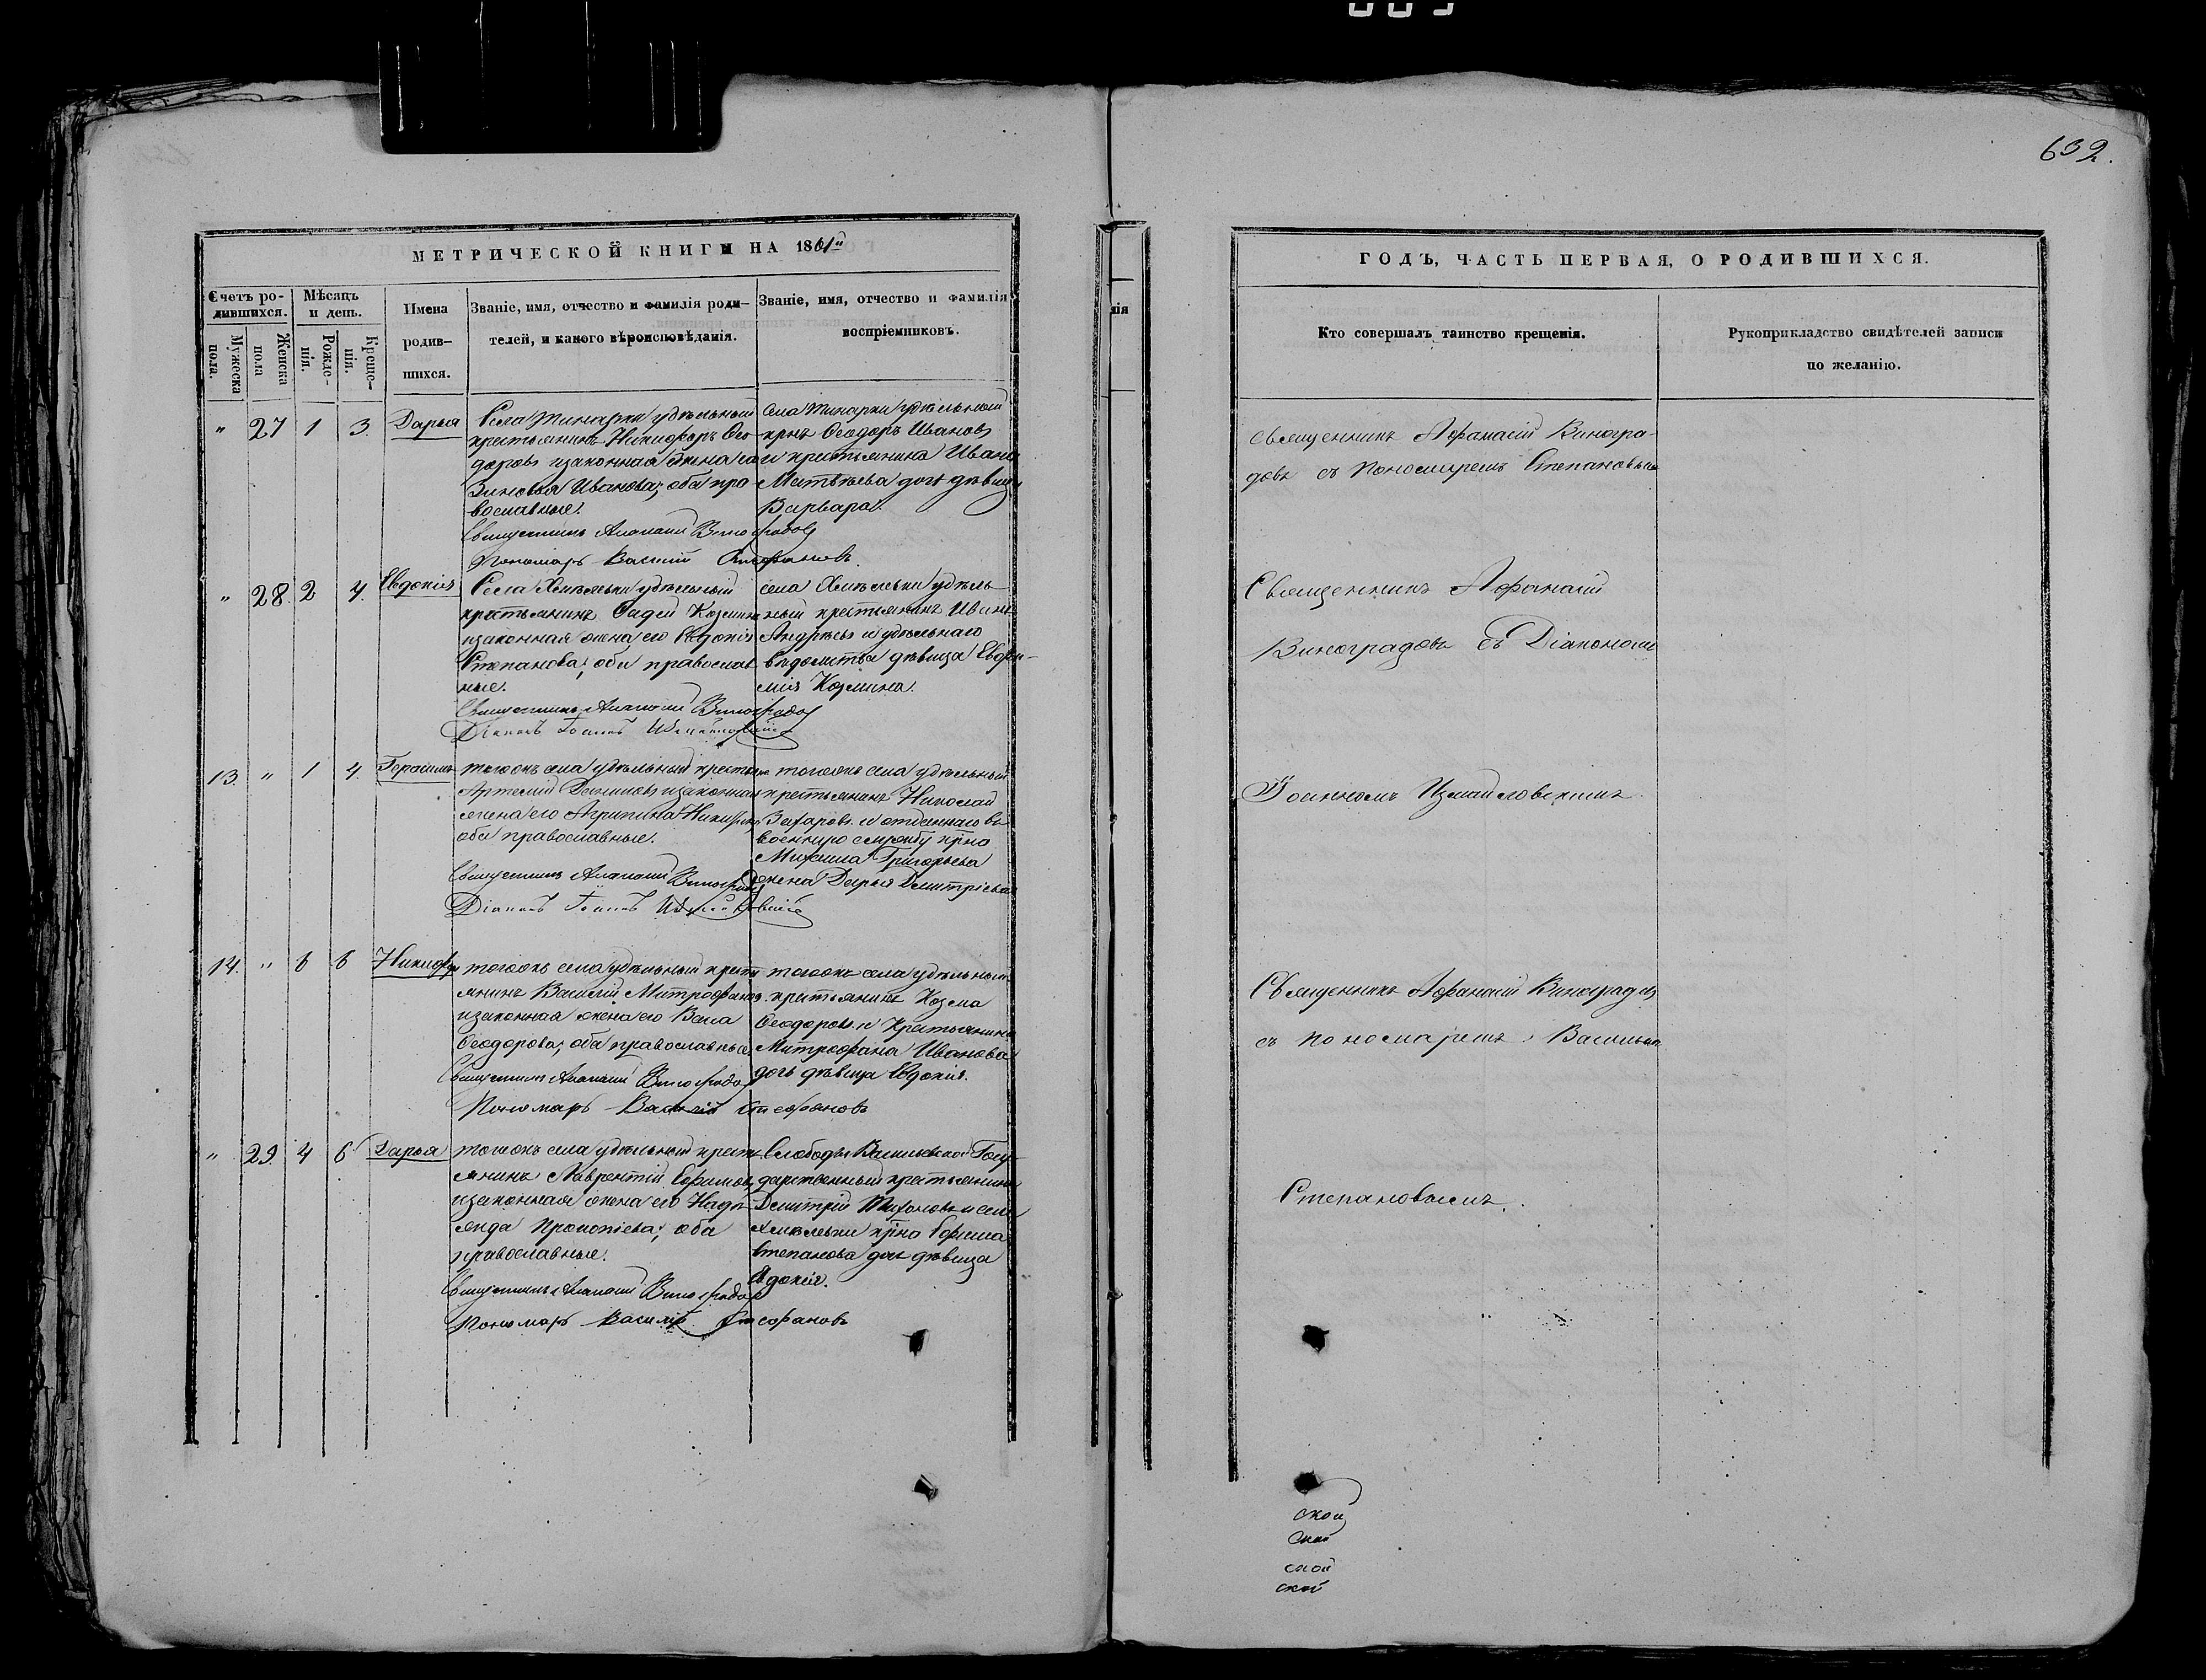 632.
МЕТРИЧЕСКОЙ КНИГИ НА 1861й
Счетъ ро-
дившихся.
Мѣсяцъ
и день.
Мужеска
пола.
Женска
пола
Рожде-
нія.
Креще-
нія.
Имена
родив-
шихся.
Званіе, имя, отчество и фамилія роди-
телей, и какого вѣроисповѣданія.
Званіе, имя, отчество и фамилія
воспріемниковъ.
" 27 1 3. Дарья
Села удѣльный
крестьянинъ Никифоръ Ѳео-
доровъ и законная жена его
Зиновья Иванова; оба пра-
вославные.
Священникъ Аѳанасій Виноградовъ
Пономарь Василій Стефановъ.
села удѣльный
крнъ Ѳеодоръ Ивановъ
и крестьянина Ивана
Матвѣева дочь дѣвица
Варвара.
" 28. 2 4. Евдокія
Села Хмѣлевки удѣльный
крестьянинъ Фадей Козминъ
и законная жена его Евдокія
Степанова; оба православ-
ные.
Священникъ Аѳанасій Виноградовъ
Діаконъ Іоаннъ Измайловскій
села Хмѣлевки удѣль-
ный крестьянинъ Иванъ
Андреевъ и удѣльнаго
вѣдомства дѣвица Евфи-
мія Козмина.
13. " 1 4. Герасимъ
тогожъ села удѣльный крестья
Артемій и законная
жена его Агрипина
оба православные.
Священникъ Аѳанасій Виноградовъ
Діаконъ Іоаннъ Измайловскій
тогожъ села удѣльный
крестьянинъ Николай
Захаровъ и отданнаго въ
военную службу крна
Михаила Григорьева
жена Дарья Дмитріева
14. " 6 6 Никифоръ
тогожъ села удѣльный крестья
янинъ Василій Митрофановъ
и законная жена его Васса
Ѳеодорова; оба православные.
Священникъ Аѳанасій Виноградовъ
Пономарь Василій Стефановъ
тогожъ села удѣльный
крестьянинъ Козма
Ѳеодоровъ и крестьянина
Митрофана Иванова
дочь дѣвица Евдокія.
" 29. 4 6 Дарья
тогожъ села удѣльный кресть
янинъ Лаврентій Ефимовъ
и законная жена его Надѣ-
жда Прокопіева; оба
православные.
Священникъ Аѳанасій Виноградовъ
Пономарь Василій Стефановъ
Слободы Васильевской Госу-
дарственный крестьянинъ
Дмитрій Тихоновъ и села
Хмѣлевки крна Ефима
Степанова дочь дѣвица
Евдокія.
нія
ГОДЪ, ЧАСТЬ ПЕРВАЯ, О РОДИВШИХСЯ.
Кто совершалъ таинство крещенія.
Рукоприкладство свидѣтелей записи
по желанію.
Священникъ Аѳанасій Виногра-
довъ съ Пономаремъ Степановымъ
Священникъ Аѳанасій
Виноградовъ съ Діакономъ
Іоанномъ Измайловскимъ
Священникъ Аѳанасій Виноградовъ
съ пономаремъ Васильемъ
Степановымъ.
ской
ской
ской
ской